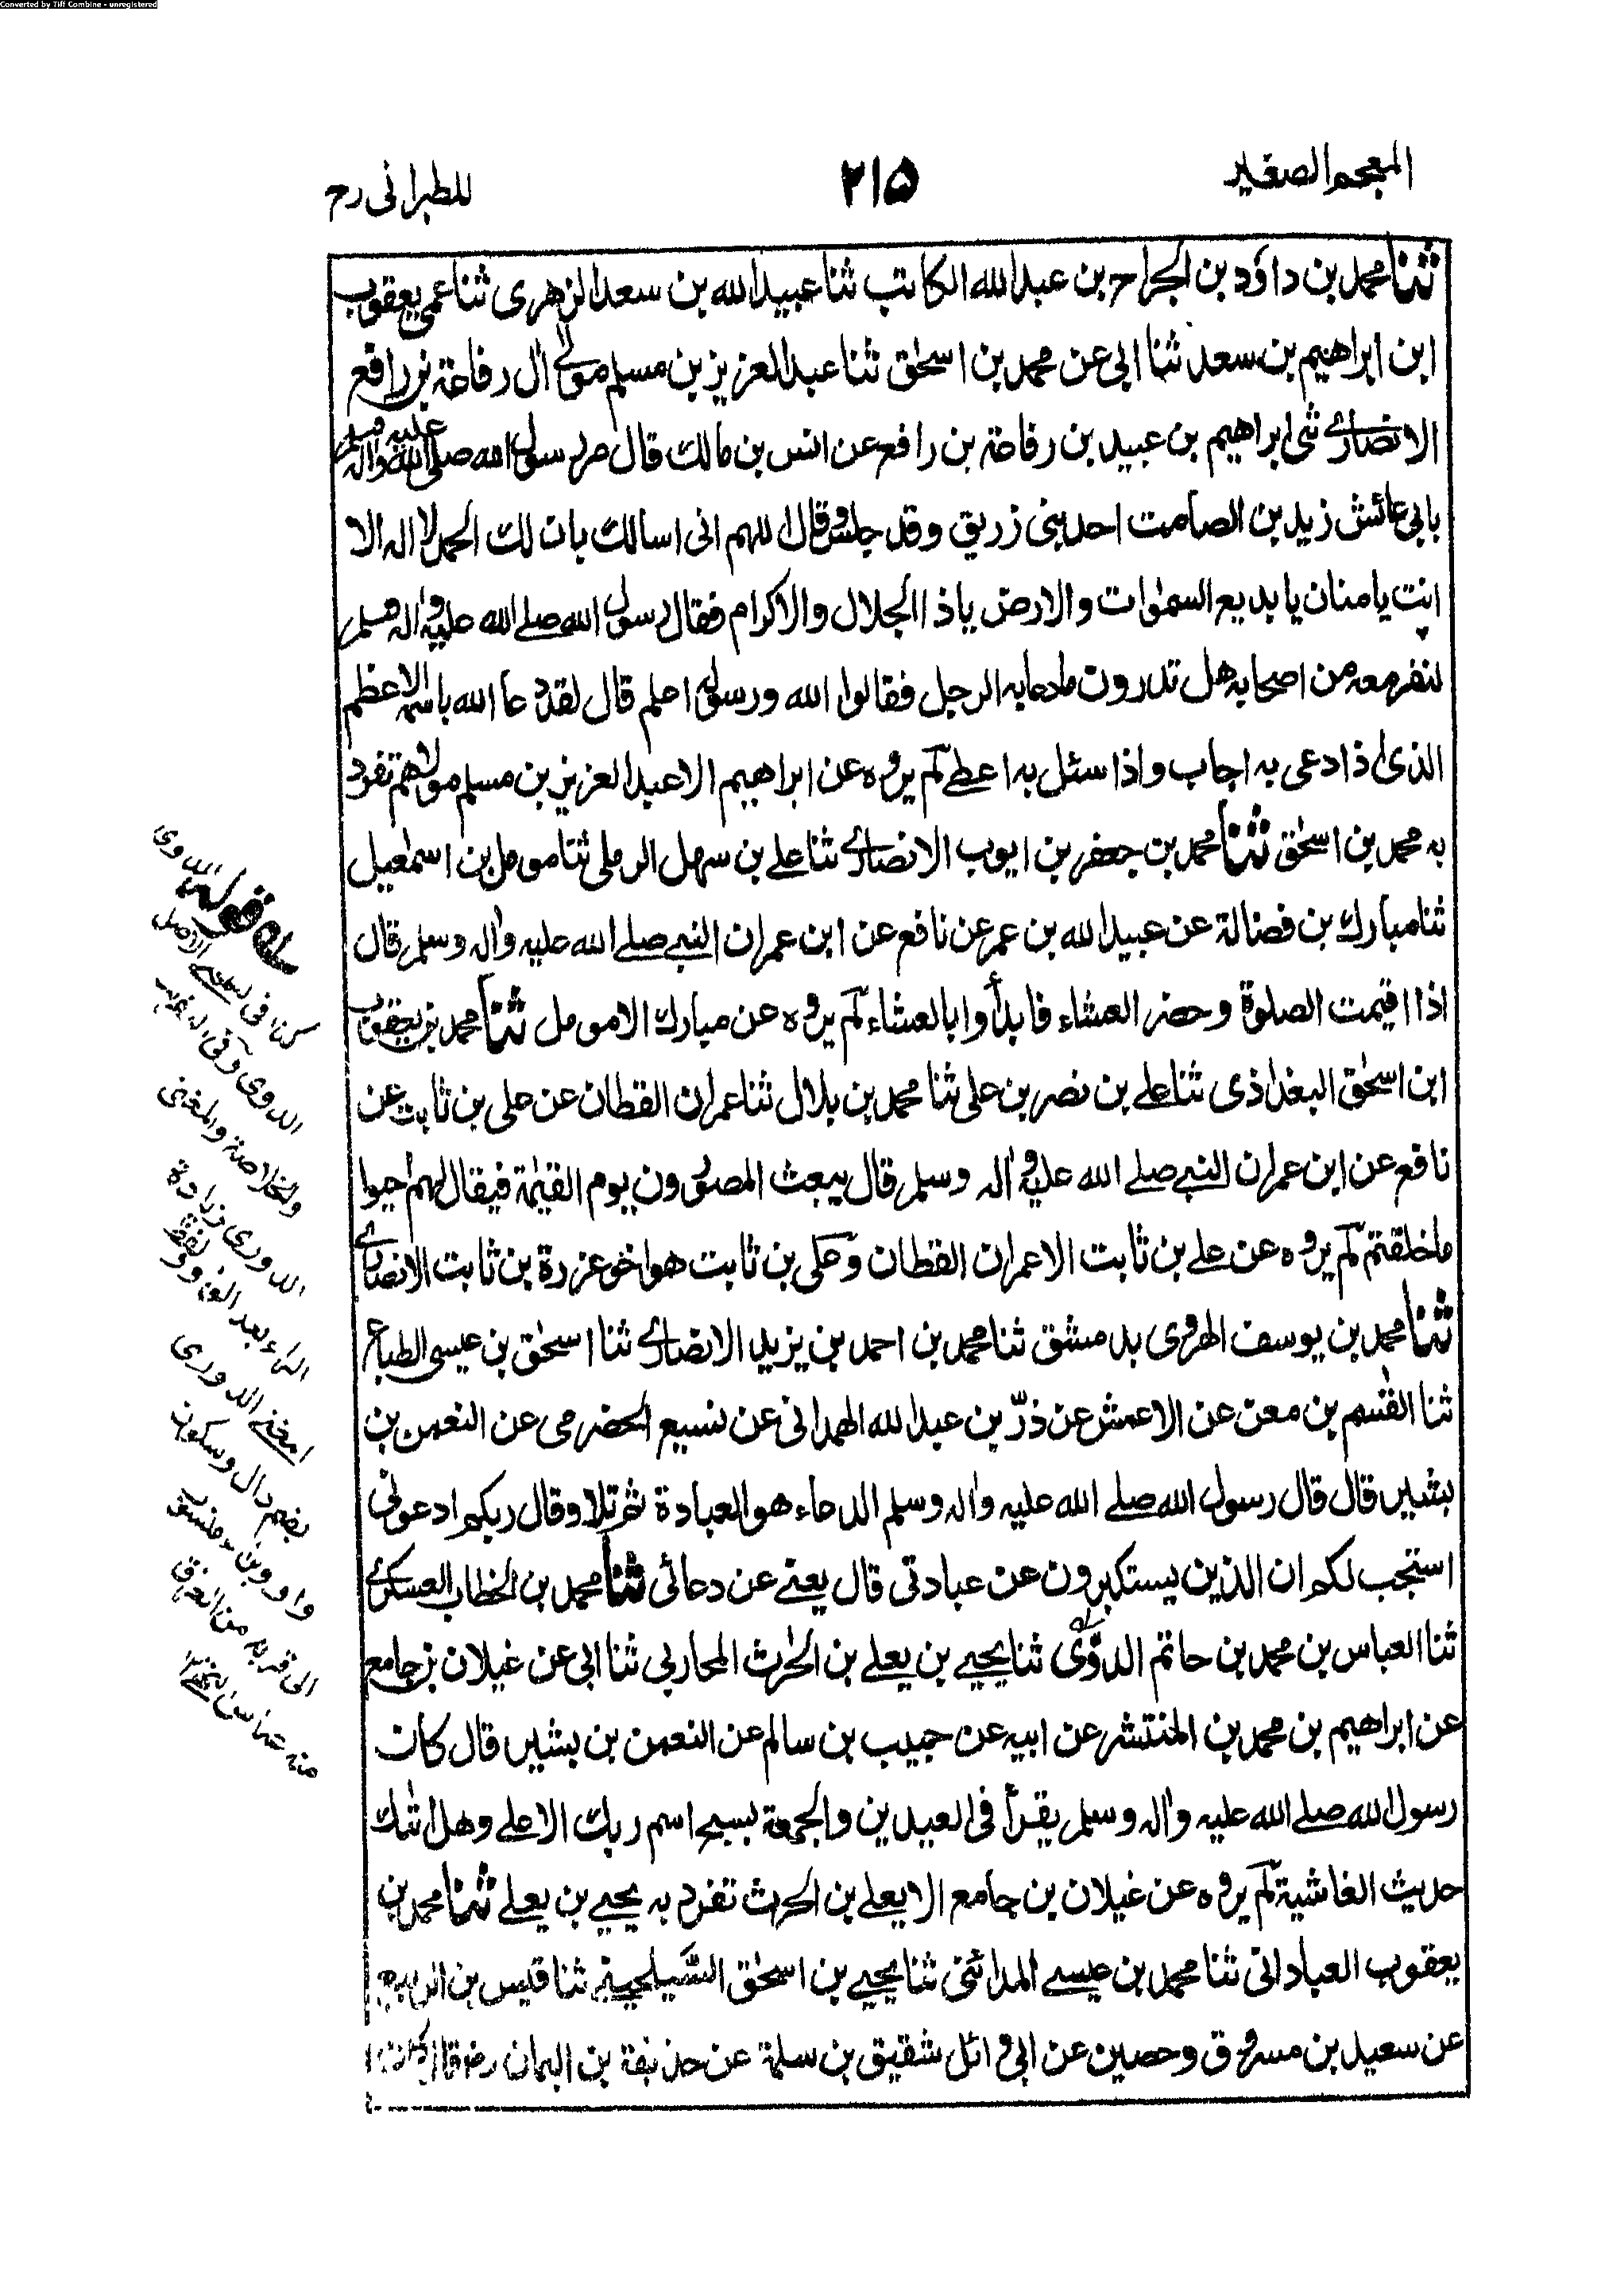 Converted by Tiff Combine - unregistered
المعجم الصغير
٢١٥
للطبرانى رح
ثنا محمد بن داؤد بن الجراح بن عبد الله الكاتب ثنا عبيد الله بن سعد الزهرى ثنا عمى يعقوب
ابن ابراهيم بن سعد ثنا ابى عن محمد بن اسحٰق ثنا عبد العزيز بن مسلم مولى اٰل رفاعة بن رافع
الانصارى ثنى ابراهيم بن عبيد بن رفاعة بن رافع عن انس بن مالك قال مر رسول الله صلى الله عليه واله وسلم
بابى عائش زيد بن الصامت احد بنى زريق وقد جلس وقال اللهم انى اسالك بان لك الحمد لا اله الا
انت يا منان يا بديع السمٰوات والارض ياذا الجلال والاكرام فقال رسول الله صلے الله عليه واله وسلم
لنفر معه من اصحابه هل تدرون ما دعا به الرجل فقالوا الله ورسوله اعلم قال لقد دعا الله باسمه الاعظم
الذى اذا دعى به اجاب واذا سئل به اعطے لم يروه عن ابراهيم الا عبد العزيز بن مسلم مولاهم تفرد
به محمد بن اسحٰق ثنا محمد بن جعفر بن ايوب الانصارى ثنا علے بن سهل الرملى ثنا مومل بن اسمٰعيل
ثنا مبارك بن فضالة عن عبيد الله بن عمر عن نافع عن ابن عمر ان النبے صلے الله عليه واٰله وسلم قال
اذا اقيمت الصلوة وحضر العشاء فابدأوا بالعشاء لم يروه عن مبارك الا مومل ثنا محمد بن يعقوب
ابن اسحٰق البغداذى ثنا علے بن نصر بن على ثنا محمد بن بلال ثنا عمران القطان عن على بن ثابت عن
نافع عن ابن عمر ان النبے صلے الله عليه واٰله وسلم قال يبعث المصورون يوم القيٰمة فيقال لهم احيوا
ما خلقتم لم يروه عن علے بن ثابت الا عمران القطان وعلى بن ثابت هو اخو عزرة بن ثابت الانصارى
ثنا محمد بن يوسف الهروى بدمشق ثنا محمد بن احمد بن يزيد الانصارى ثنا اسحٰق بن عيسى الطباع
ثنا القٰسم بن معن عن الاعمش عن ذرّ بن عبد الله الهمدانى عن نسيع الحضرمى عن النعمٰن بن
بشير قال قال رسول الله صلے الله عليه واٰله وسلم الدعاء هو العبادة ثم تلا وقال ربكم ادعونى
استجب لكم ان الذين يستكبرون عن عبادتى قال يعنے عن دعائى ثنا محمد بن الخطاب العسكرى
ثنا العباس بن محمد بن حاتم الدوى ثنا يحيے بن يعلے بن الحٰرث المحاربى ثنا ابى عن غيلان بن جامع
عن ابراهيم بن محمد بن المنتشر عن ابيه عن حبيب بن سالم عن النعمٰن بن بشير قال كان
رسول الله صلے الله عليه واٰله وسلم يقرأ فى العيدين والجمعة بسبح اسم ربك الاعلے وهل اتٰك
حديث الغاشية لم يروه عن غيلان بن جامع الا يعلے بن الحرث تفرد به يحيے بن يعلے ثنا محمد بن
يعقوب العبادانى ثنا محمد بن عيسے المدائنى ثنا يحيے بن اسحٰق السَّيلحينے ثنا قيس بن الربيع
عن سعيد بن مسروق وحصين عن ابى وائل شقيق بن سلمة عن حذيفة بن اليمان رض قال
قوله الدوى
كذا فى الاصل
الدوى وفى
والخلاصة والمغنى
الدورى بزيادة
الراء بعد الواو
مغنے الدورى
بضم دال وسكون
واو
الى قرية من العراق
منه